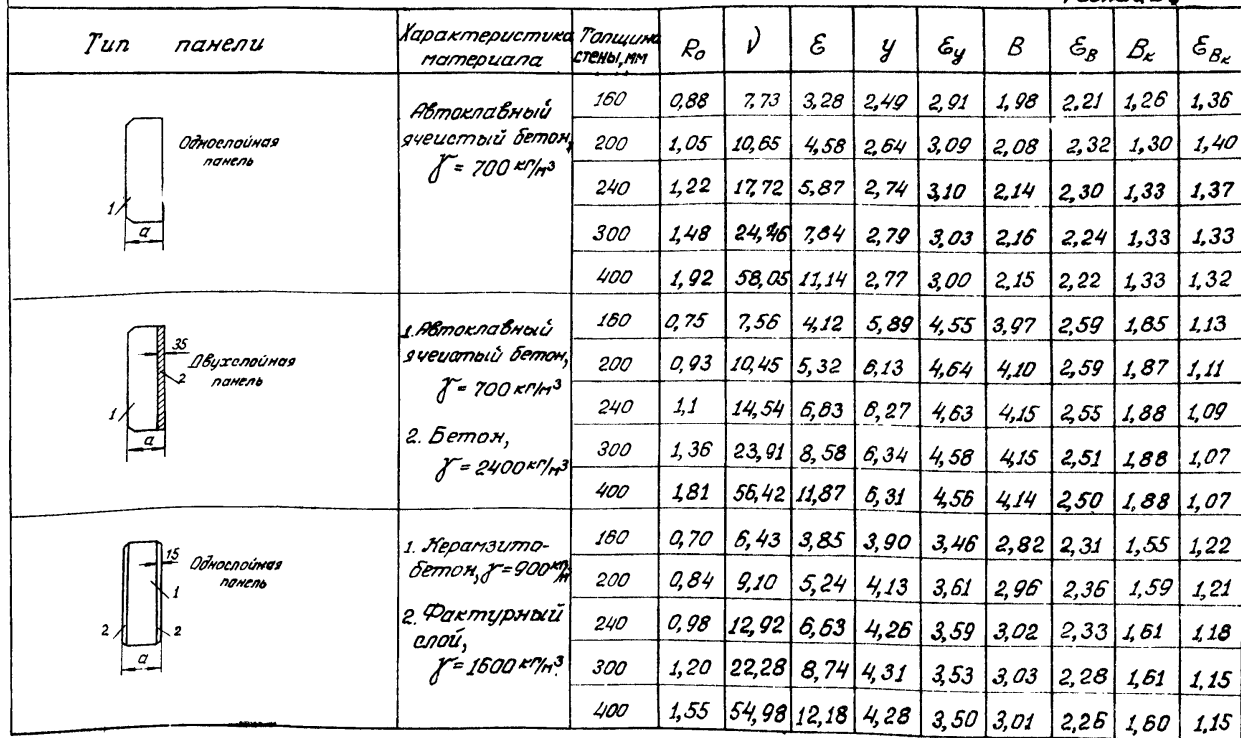 Тип панели Характеристика материала Толщина стены, мм R₀ ν ε y ε_y B ε_B B_к ε_Bк
Однослойная панель
1
a
Автоклавный
ячеистый бетон,
γ = 700 кг/м³
160 0,88 7,73 3,28 2,49 2,91 1,98 2,21 1,26 1,36
200 1,05 10,65 4,58 2,64 3,09 2,08 2,32 1,30 1,40
240 1,22 17,72 5,87 2,74 3,10 2,14 2,30 1,33 1,37
300 1,48 24,46 7,84 2,79 3,03 2,16 2,24 1,33 1,33
400 1,92 58,05 11,14 2,77 3,00 2,15 2,22 1,33 1,32
35
Двухслойная панель
2
1
a
1. Автоклавный
ячеистый бетон,
γ = 700 кг/м³
2. Бетон,
γ = 2400 кг/м³
160 0,75 7,56 4,12 5,89 4,55 3,97 2,59 1,85 1,13
200 0,93 10,45 5,32 6,13 4,64 4,10 2,59 1,87 1,11
240 1,1 14,54 6,63 6,27 4,63 4,15 2,55 1,88 1,09
300 1,36 23,91 8,58 6,34 4,58 4,15 2,51 1,88 1,07
400 1,81 56,42 11,87 6,31 4,56 4,14 2,50 1,88 1,07
15
Однослойная панель
1
2 2
a
1. Керамзито-
бетон, γ = 900 кг/м
2. Фактурный
слой,
γ = 1600 кг/м³
160 0,70 6,43 3,85 3,90 3,46 2,82 2,31 1,55 1,22
200 0,84 9,10 5,24 4,13 3,61 2,96 2,36 1,59 1,21
240 0,98 12,92 6,63 4,26 3,59 3,02 2,33 1,61 1,18
300 1,20 22,28 8,74 4,31 3,53 3,03 2,28 1,61 1,15
400 1,55 54,98 12,18 4,28 3,50 3,01 2,26 1,60 1,15